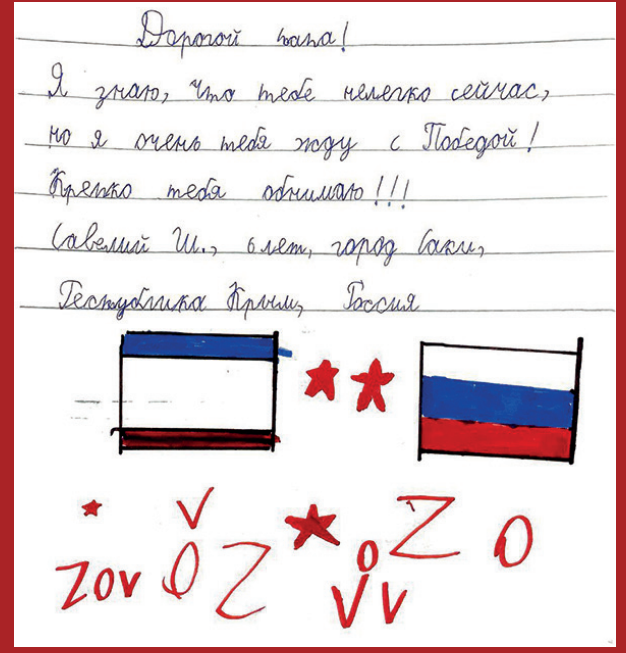 Дорогой папа!
Я знаю, что тебе нелегко сейчас,
но я очень тебя жду с Победой!
Крепко тебя обнимаю!!!
Савелий Ш., 6 лет, город Саки,
Республика Крым, Россия
V Z O
ZOV O Z O V V